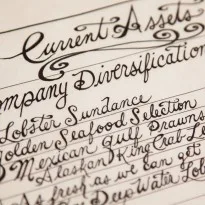 Current Assets
ompany Diversification
Lobster Sundance
olden Seafood Selection
Mexican Gulf Prawns
Alaskan King Crab Le
As fresh as we can get
Deep Water Lob